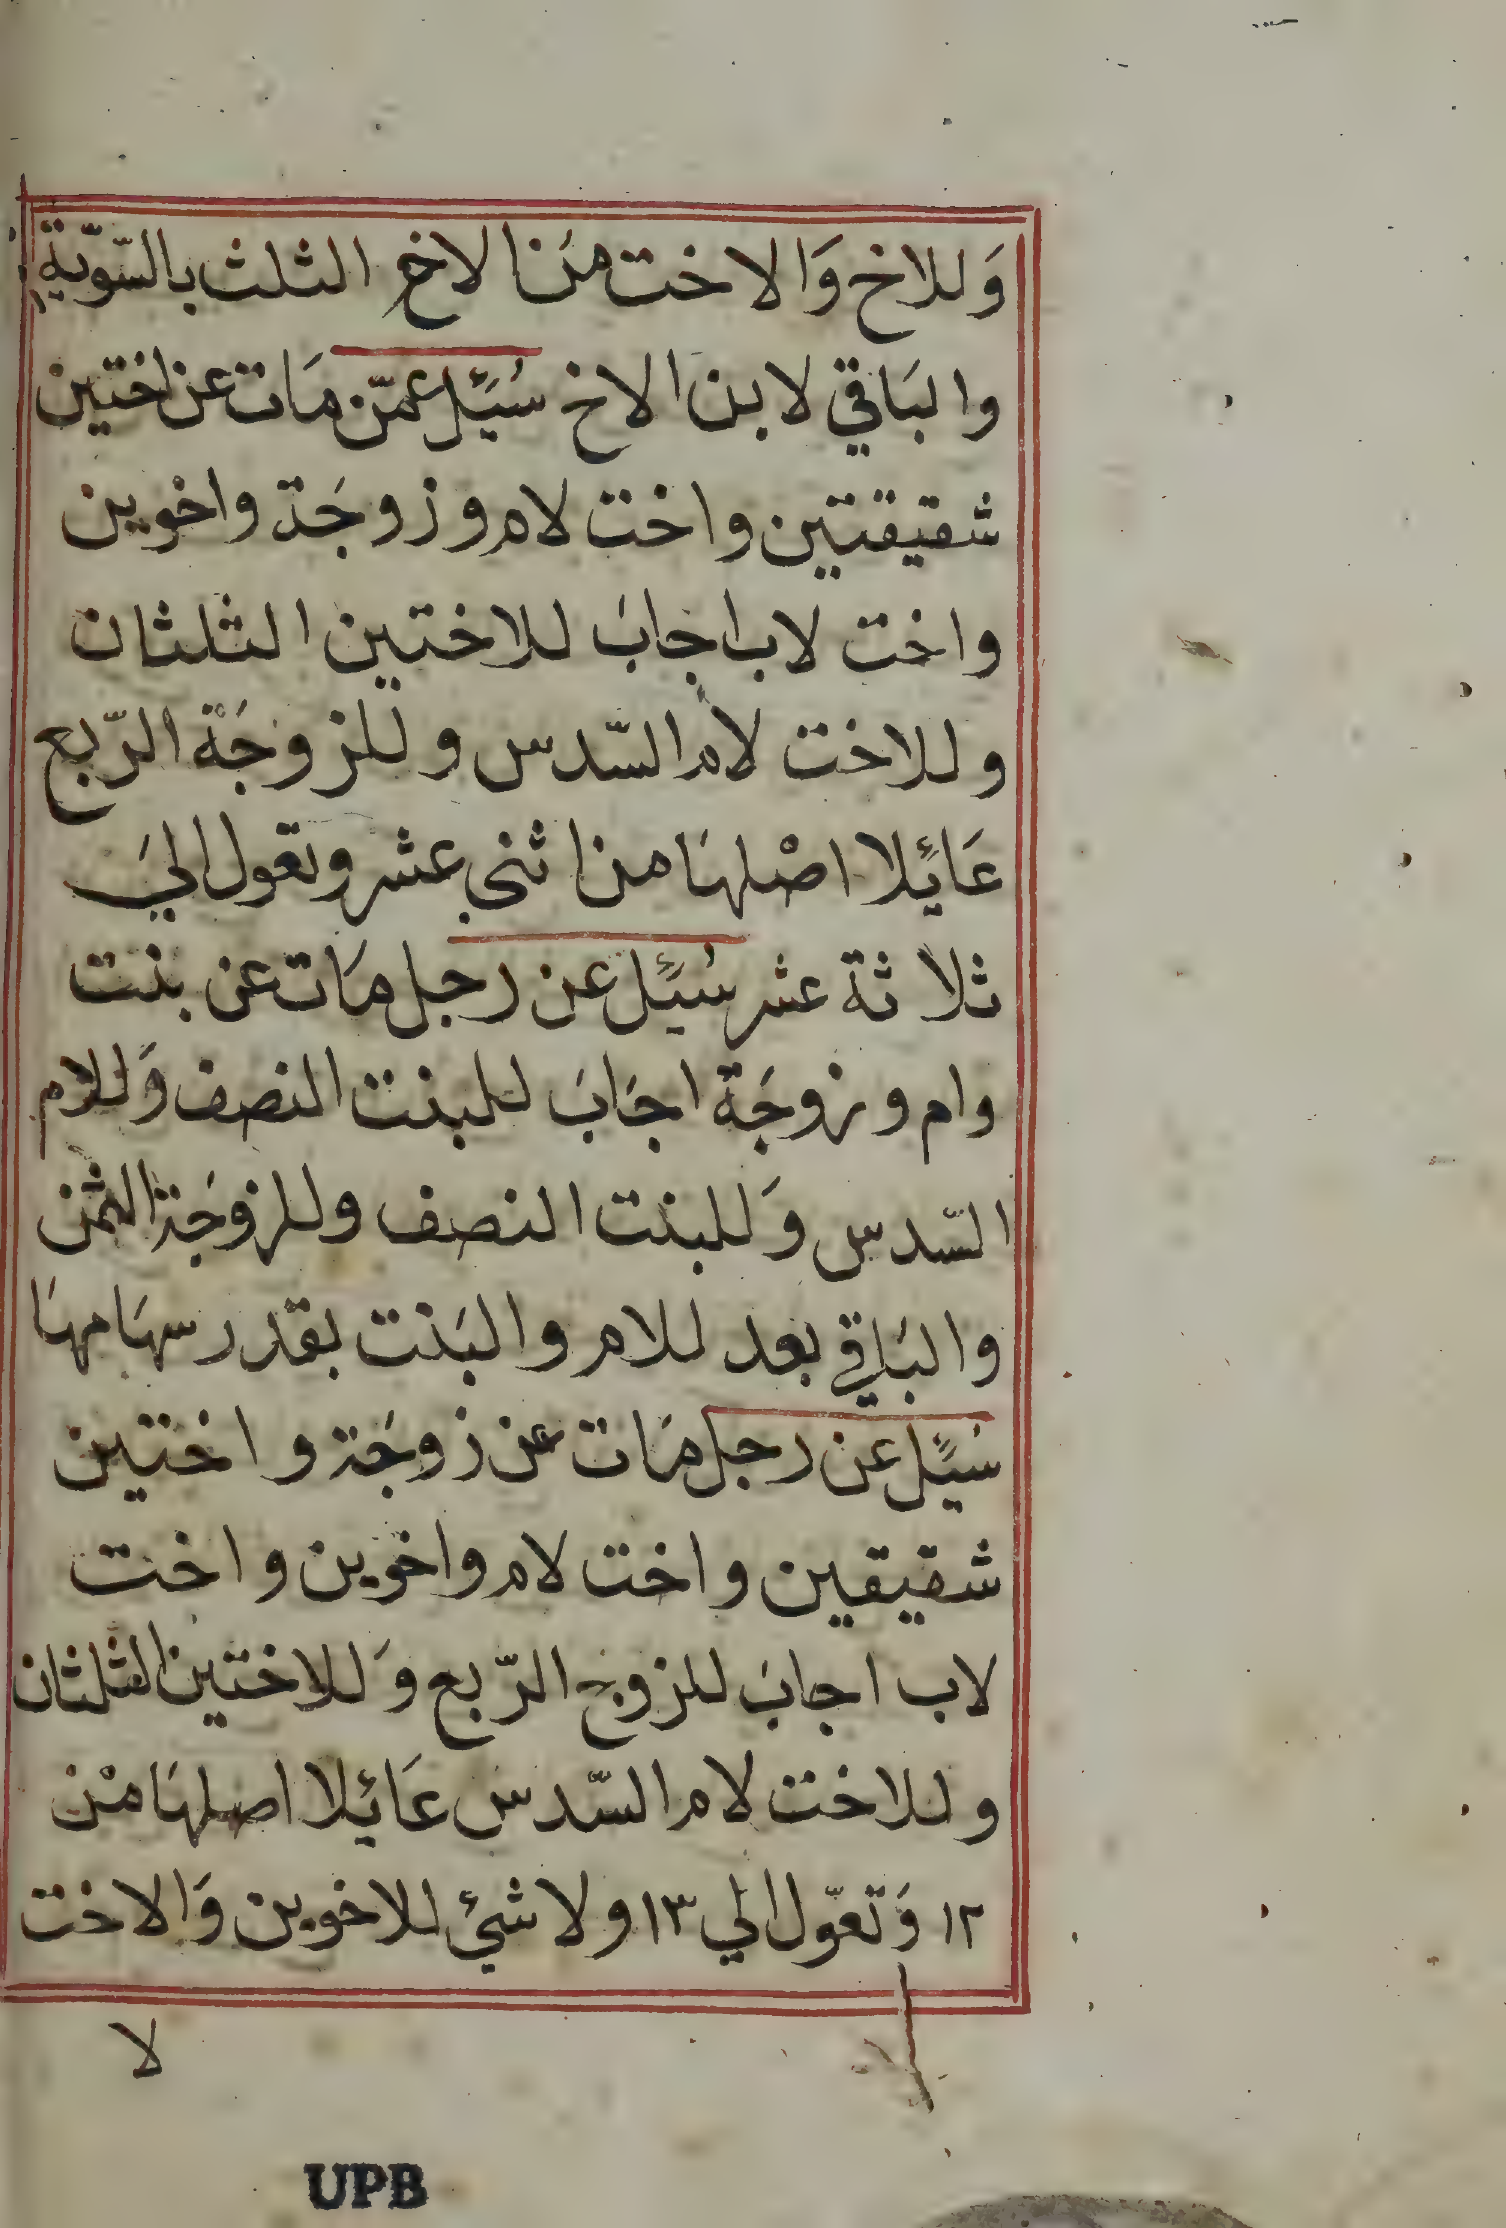 وَللاخ وَالاخت من الاخ الثلث بالسّويّة
والبَاقي لابن الاخ سُئِل عمّن مَات عن اختين
شقيقتين واخت لام وزوجَة واخوين
واخت لاب اجابَ للاختين الثلثان
وللاخت لام السّدس وللزوجَة الرّبع
عَائِلا اصْلهَا من اثنى عشر وتعول اليَ
ثلاثة عشر سُئِل عن رجل مَات عن بنت
وام وزوجَة اجَابَ للبنت النصف وَللام
السّدس وَللبنت النصف وللزوجَة الثمن
والبَاقي بعد للام والبَنت بقدر سهَامهَا
سُئِل عن رجل مَات عن زوجَة واختين
شقيقين واخت لام واخوين واخت
لاب اجابَ للزوج الرّبع وَللاختين الثلثان
وللاخت لام السّدس عَائِلا اصلهَا منْ
١٢ وَتعوّل الي ١٣ ولا شئ للاخوين وَالاخت
لا
UPB